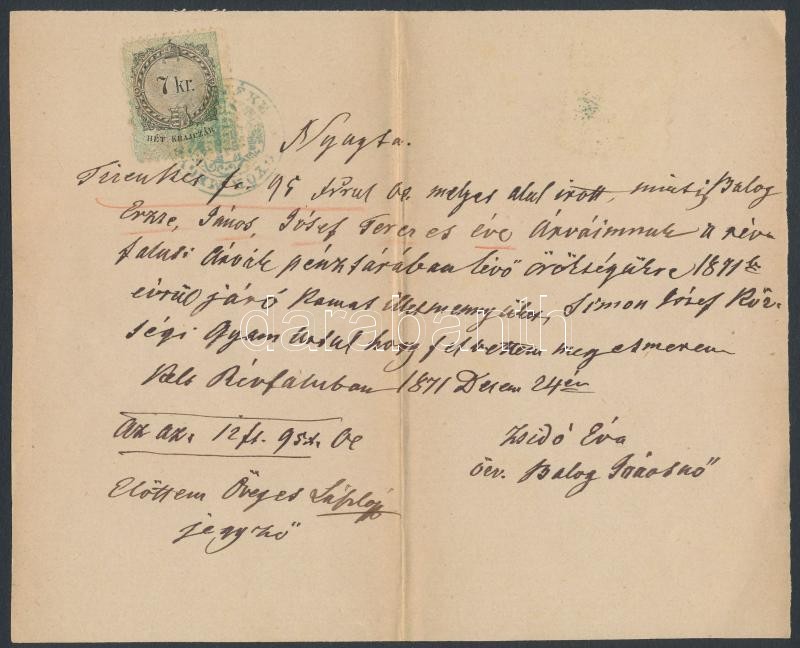 7 kr.
HÉT KRAJCZÁR
Nyugta.
Tizenkét fr 95 Oe melyet alul irott, mint Balog
Erzse, János, Jósef Terez es éve Árváimnak a rév
falusi Árvák pénztárában lévő örökségükre 1871k
evrül járó Kamat illetmenyüket, Simon Jósef Köz-
ségi Gyam Urtul hogy felvettem megesmerem
Kelt Révfaluban 1871 Decem 24en
Az az. 12 ft. 95x. Oe
Zsidó Éva
özv. Balog Jánosnő
Előttem Öveges László
jegyző
darabanth